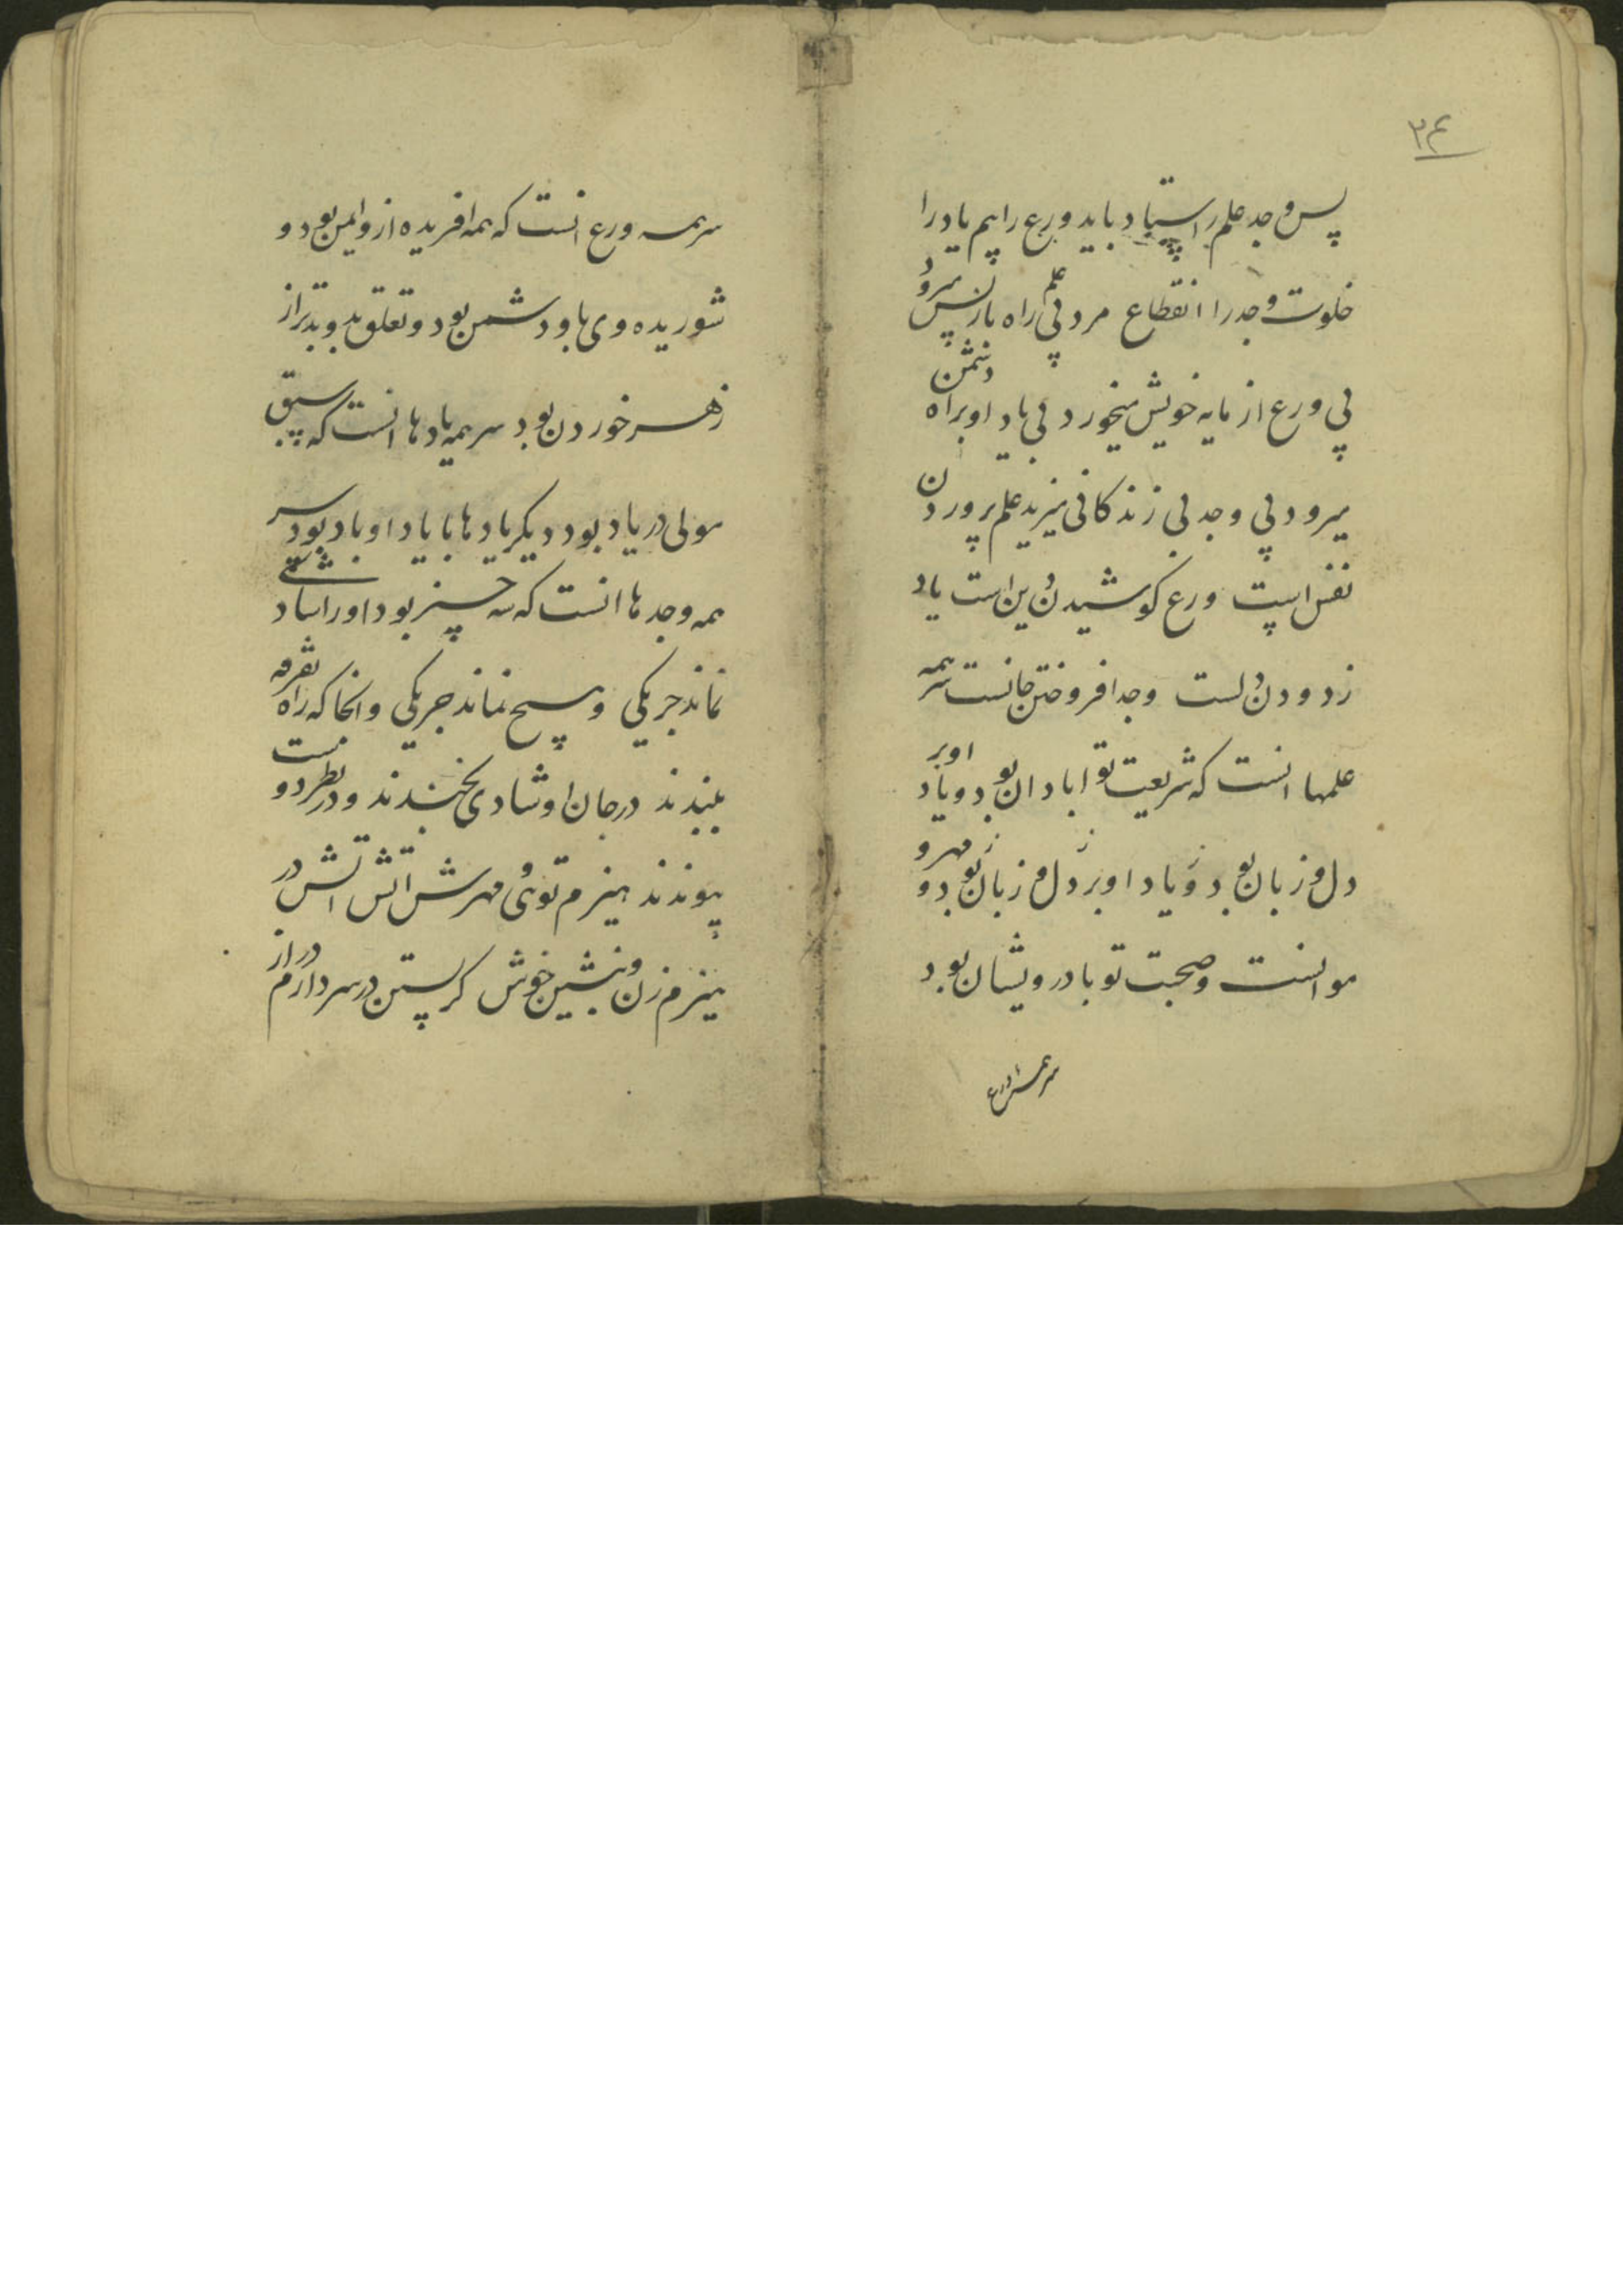 ۳۴
پس وجد علم را استاد باید ورع را بیم یاد را
خلوت وجد را انقطاع مرد بی علم راه بازپس میرود
بی ورع از مایه خویش میخورد بی یاد او براه دشمن
میرود بی وجد بی زندگانی میزید علم پروردن
نفس است ورع کوشیدن دین است یاد
زدودن دلست وجد افروختن جانست سر همه
علمها انست که شریعت تو ابادان بود و یاد او بر
دل و زبان بود و یاد او بر دل و زبان تو بود و مهر و
موانست و صحبت تو با درویشان بود
سر همه ورع
سر همه ورع انست که همه افریده ازو ایمن بود و
شوریده وی باو دشمن بود و تعلق بد و بدتر از
زهر خوردن بود سر همه یادها انست که سبق
مولی در یاد بود دیکر یادها با یاد او باد بود سر
همه وجدها انست که سه چیز بود او را شتاد
نماند جز یکی و هیچ نماند جز یکی وانجا که راه تفرقه است
ببندند در جان او شادی بخندند و در نظر دو
پیوندند هیزم توئی و مهرش اتش اتش در
هیزم زن و بنشین خوش کریستن در سر دارم دراز